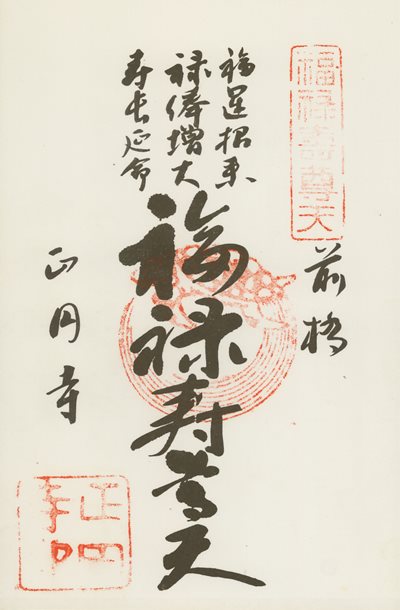 福禄寿尊天
前橋
福運招来
禄俸増大
寿長延命
福禄寿尊天
正円寺